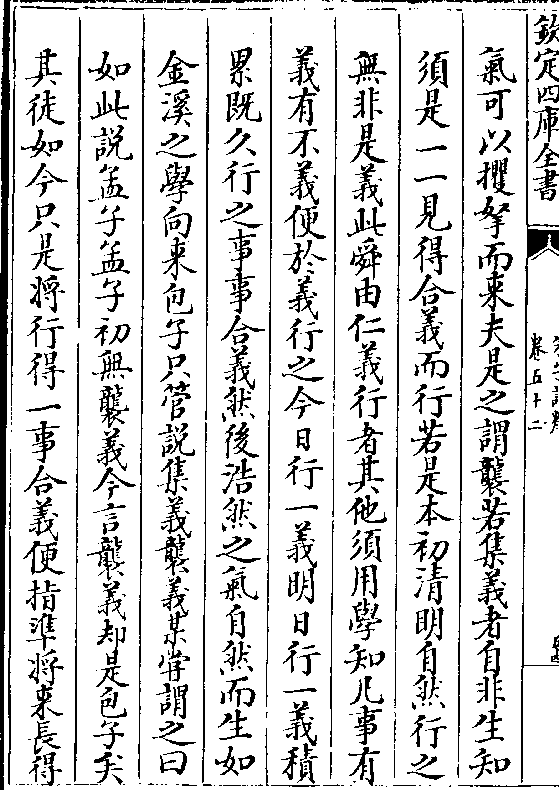 欽定四庫全書
卷五十二
氣可以攫拏而来夫是之謂襲若集義者自非生知
須是一一見得合義而行若是本初清明自然行之
無非是義此舜由仁義行者其他須用學知凡事有
義有不義便於義行之今日行一義明日行一義積
累既久行之事事合義然後浩然之氣自然而生如
金溪之學向来包子只管説集義襲義某嘗謂之曰
如此説孟子孟子初無襲義今言襲義却是包子矣
其徒如今只是將行得一事合義便指準將来長得